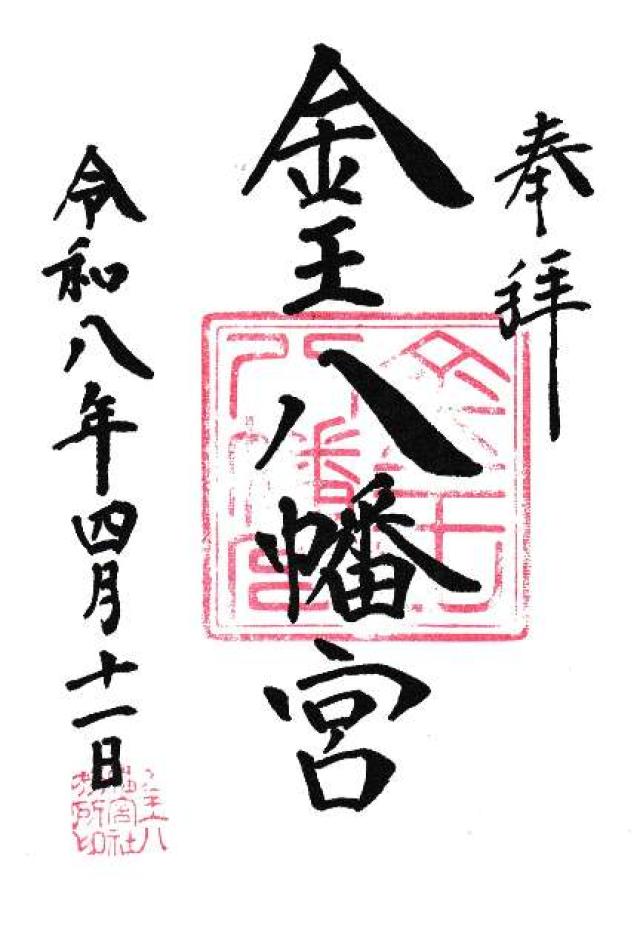 奉拝
金王八幡宮
令和八年四月十一日
金王八幡宮
金王八幡宮社務所印